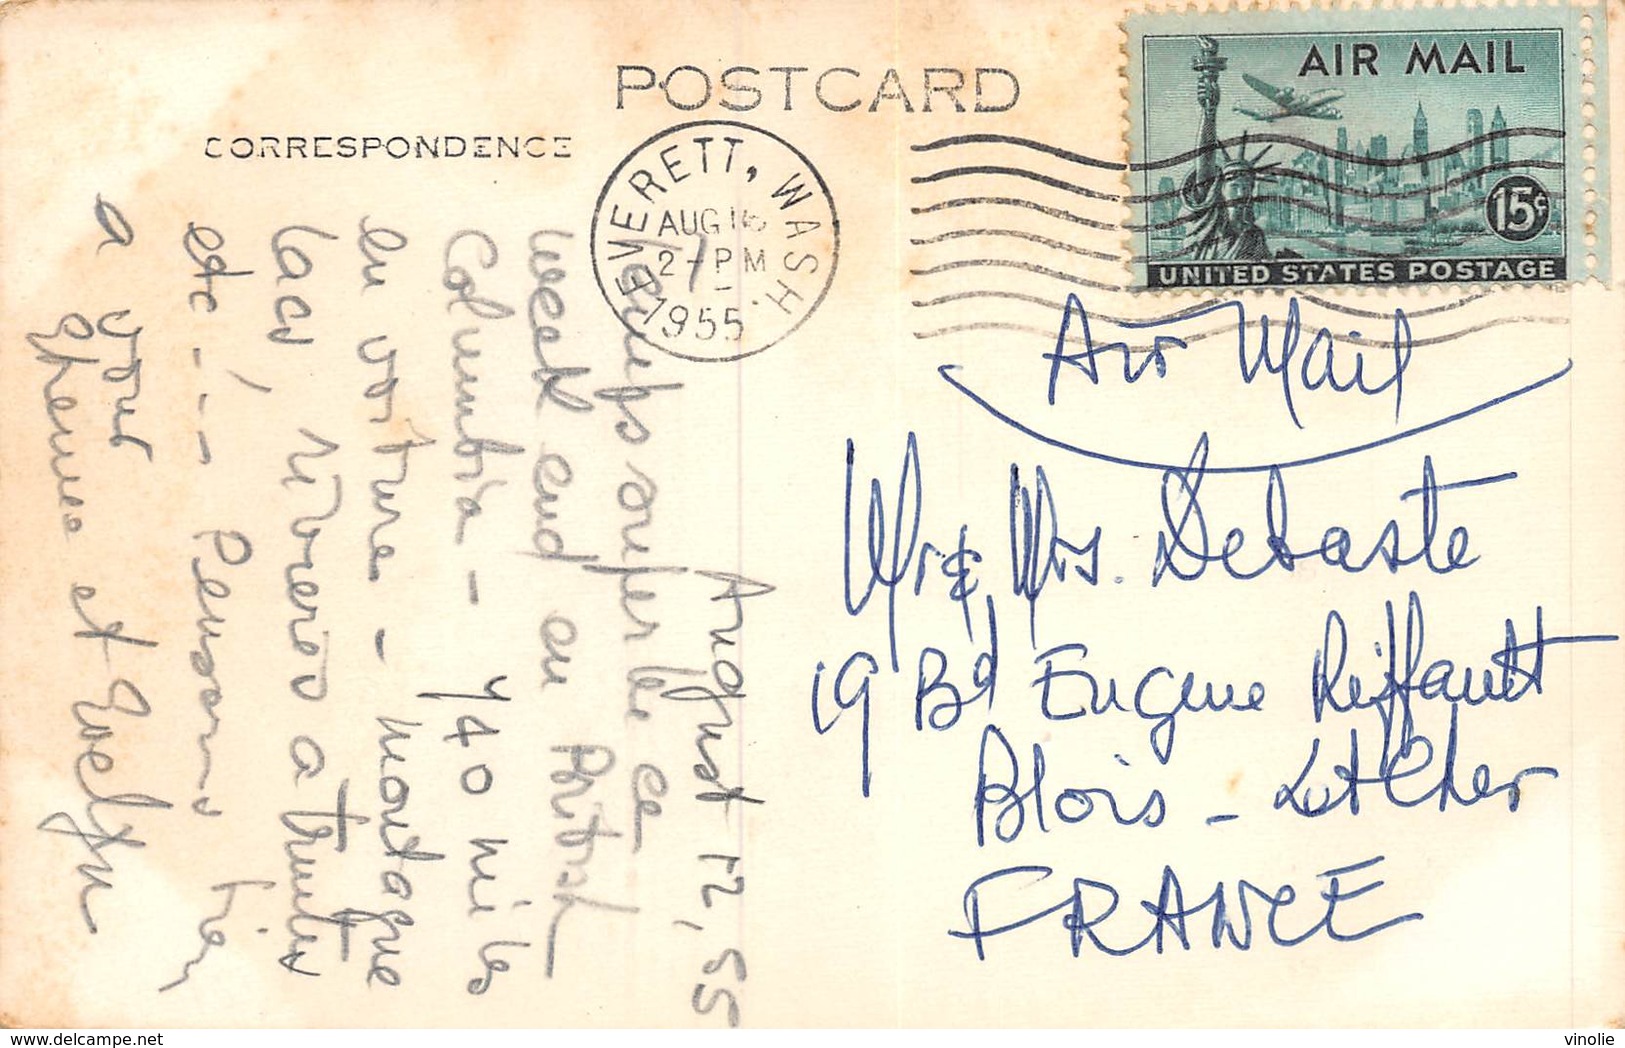 POSTCARD
CORRESPONDENCE
EVERETT, WASH.
AUG 16
2-PM
1955
AIR MAIL
15¢
UNITED STATES POSTAGE
Air Mail
Mr & Mrs. Debaste
19 Bd Eugene Riffault
Blois - L et Cher
FRANCE
August 12, 55
Temps superbe ce
week end au British
Columbia - 740 miles
en voiture - montagne
lacs, rivieres a truites
etc - - - Pensons bien
a vous
et Evelyn
delcampe.net
vinolie